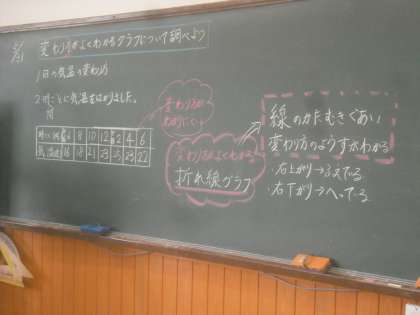 変わり方がよくわかるグラフについて調べよう
1日の気温の変わり方
2時間ごとに気温をはかりました。
時こく 6 8 10 12 2 4 6
気温 16 18 21 23 25 23 22
変わり方が
わかりにくい
変わり方がよくわかる
折れ線グラフ
線のかたむきぐあい
変わり方のようすがわかる
・右上がり→ふえている
・右下がり→へってる